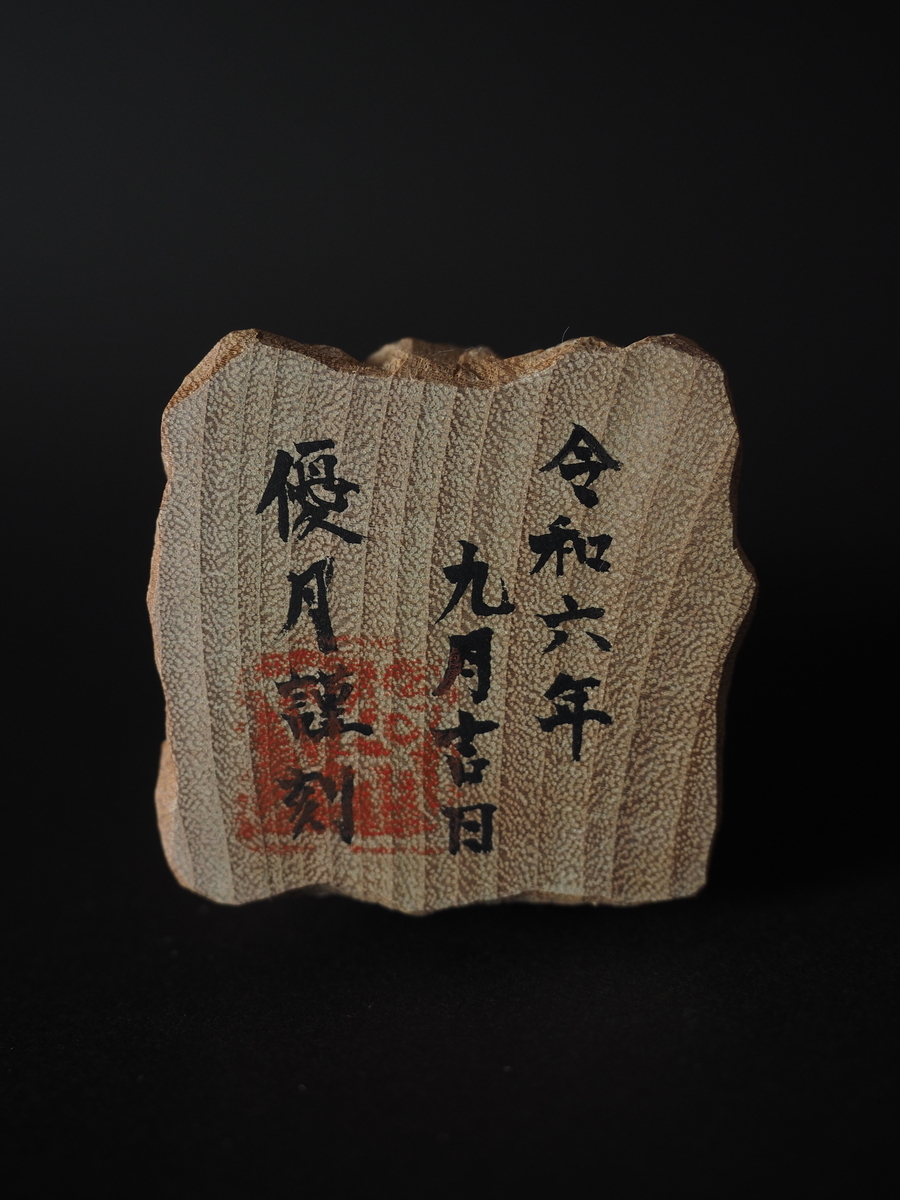 令和六年
九月吉日
優月謹刻